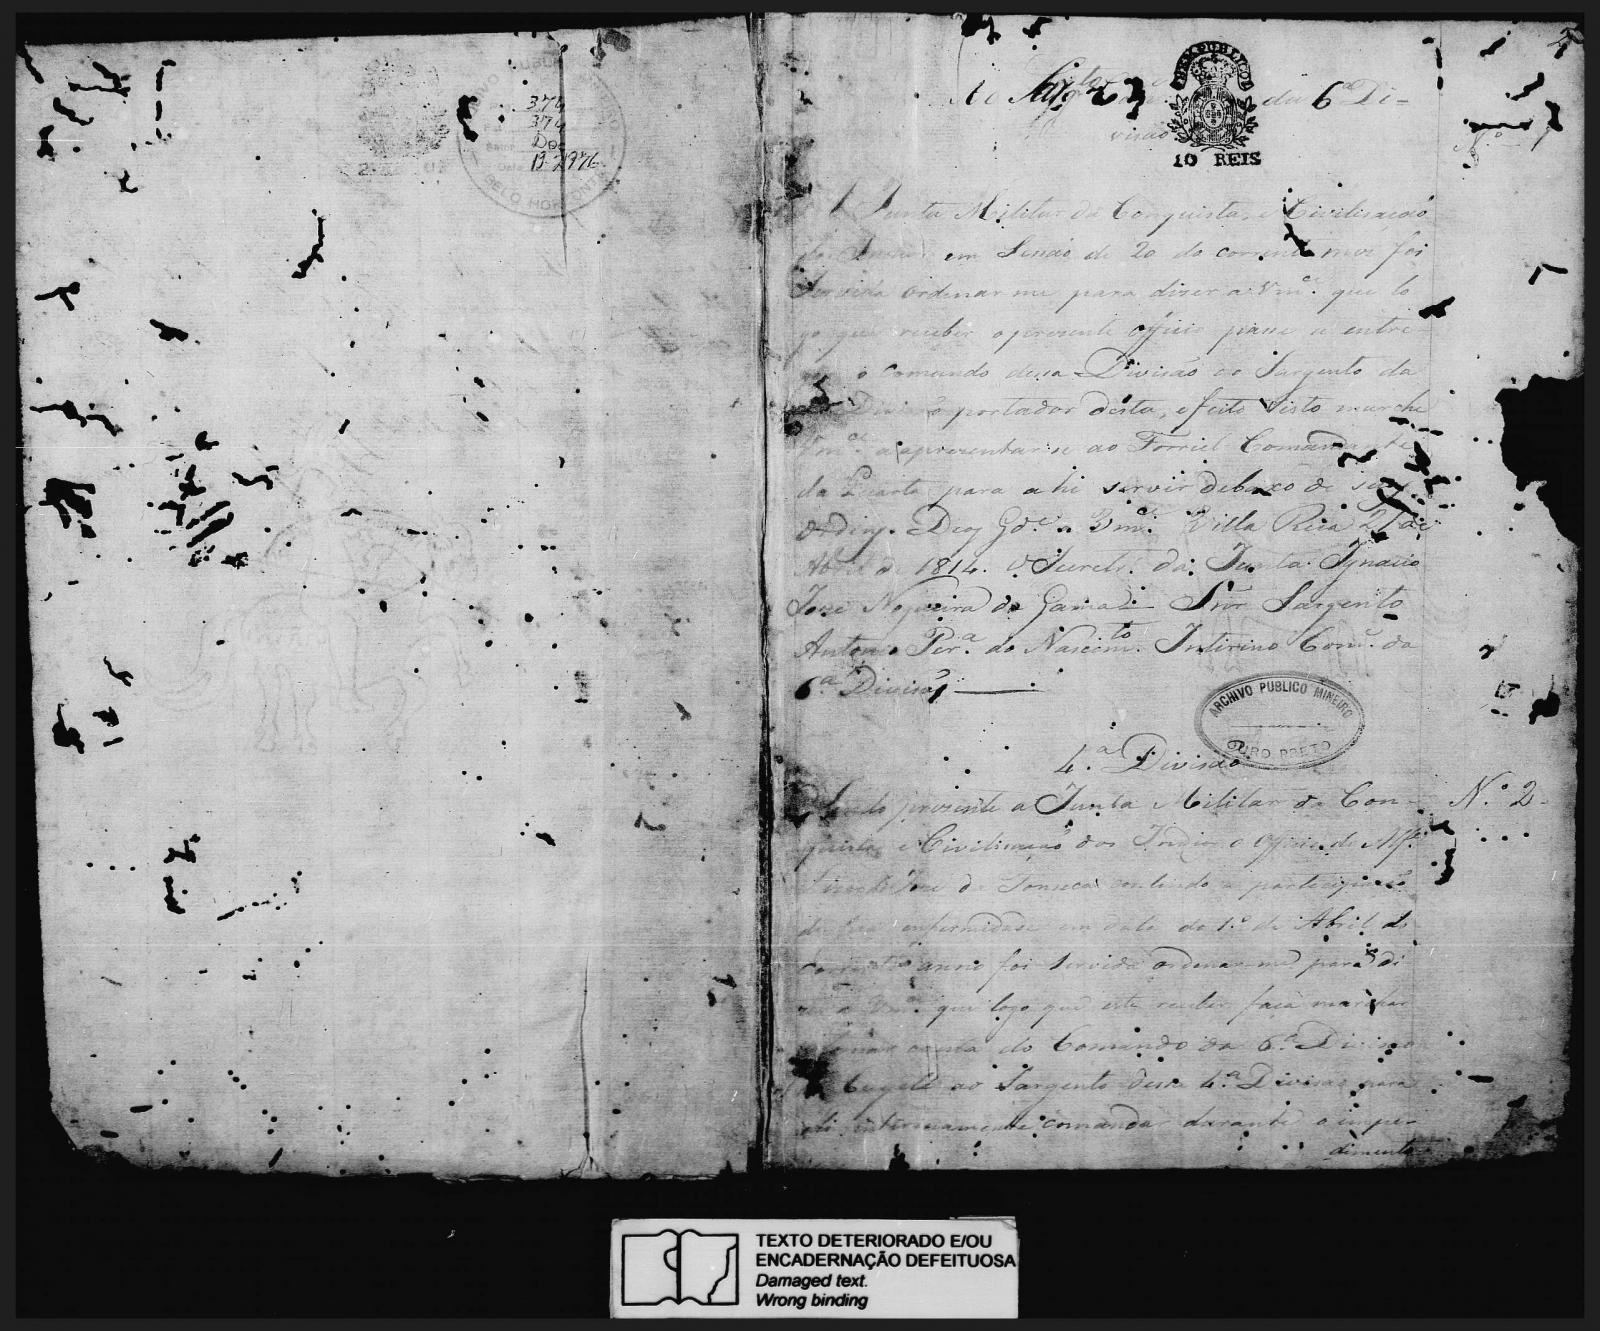 374
374
Doc
2
Ao Sarg.to da 6.a Di=
visão
N.o 1
10 REIS
A Junta Militar da Conquista, e Civilisação
dos Indios em Sessão de 20 do corrente mez foi
Servida ordenar me para dizer a Vm.ce que lo
go que receber o presente officio passe a entre-
gar o comando dessa Divisão ao Sargento da
Divisão portador desta, e feito isto marche
Vm.ce a aprezentar se ao Forriel Comandante
da Quarta para ahi servir debaxo de suas
ordẽs. Deos G.de a Vm.ce Villa Rica 21 de
Abril de 1814. O Secret.o da Junta Ignacio
Joze Nogueira da Gama = Snr Sargento
Antonio Per.a do Nascim.to Interino Com.e da
6.a Divisão
ARCHIVO PUBLICO MINEIRO
OURO PRETO
4.a Divisão
N.o 2
Sendo prezente a Junta Militar da Con-
quista, e Civilisação dos Indios o Officio do Alf.es
Joze da Fonseca contendo a participação
de sua enfermidade em data do 1.o de Abril do
corrente anno foi servida ordenar-me para di
zer a Vm.ce que logo que este receber faça marchar
a tomar conta do Comando da 6.a Divisão
ao Sargento dessa 4.a Divisão para
ahi interinamente comandar durante o impe-
dimento
TEXTO DETERIORADO E/OU
ENCADERNAÇÃO DEFEITUOSA
Damaged text.
Wrong binding